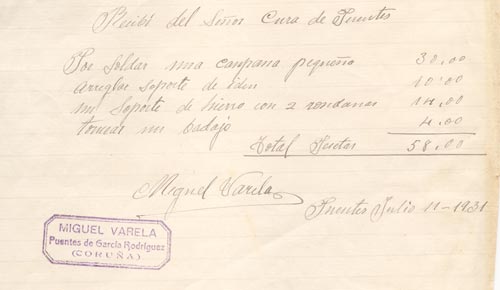 Recibí del Señor Cura de Puentes
Por soldar una campana pequeña 30.00
arreglar soporte de idem 10.00
un soporte de hierro con 2 rondanas 14.00
tornear un badajo 4.00
Total Psetas 58.00
Miguel Varela
Puentes Julio 11-1931
MIGUEL VARELA
Puentes de García Rodríguez
(CORUÑA)